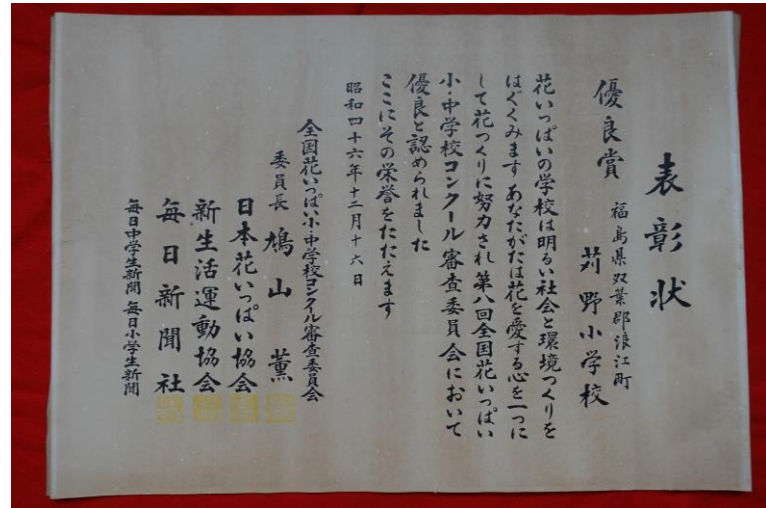 表彰状
優良賞
福島県双葉郡浪江町
苅野小学校
花いっぱいの学校は明るい社会と環境つくりを
はぐくみます あなたがたは花を愛する心を一つに
して花つくりに努力され 第八回全国花いっぱい
小・中学校コンクール審査委員会において
優良と認められました
ここにその栄誉をたたえます
昭和四十六年十二月十六日
全国花いっぱい小・中学校コンクール審査委員会
委員長 鳩山薫
日本花いっぱい協会
新生活運動協会
毎日新聞社
毎日中学生新聞 毎日小学生新聞